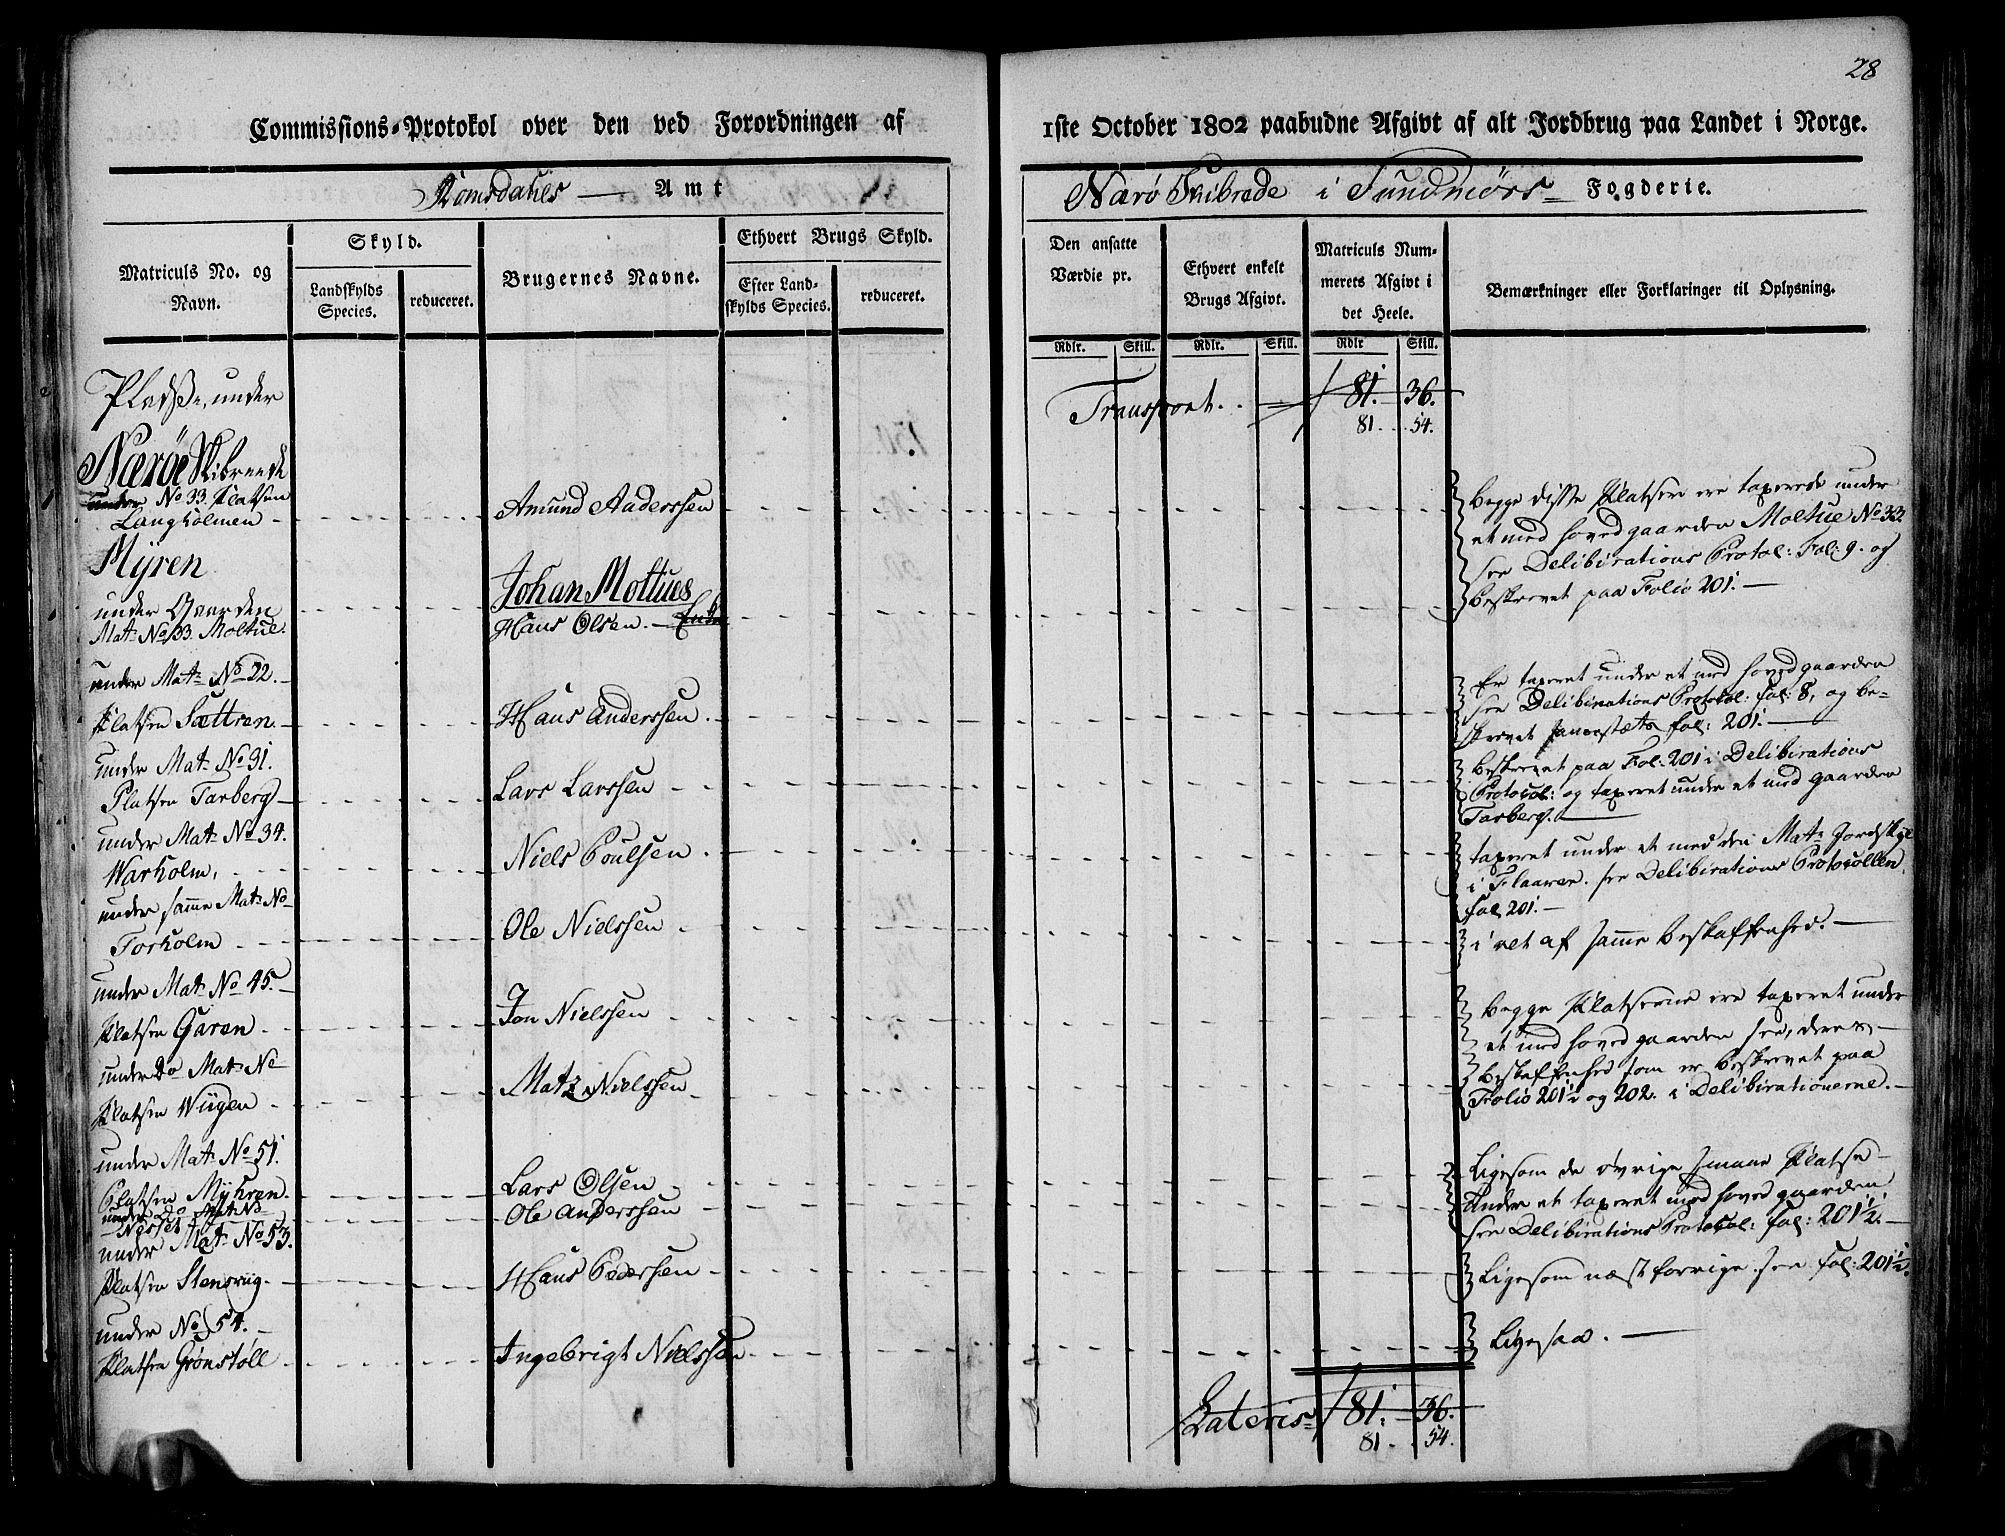 28
Commissions-Protokol over den ved Forordningen af
1ste October 1802 paabudne Afgivt af alt Jordbrug paa Landet i Norge.
Romsdahls — Amt
Nærø Skibrede i Sundmørs Fogderie.
Matriculs No. og Navn.
Skyld.
Landskylds Species.
reduceret.
Brugernes Navne.
Ethvert Brugs Skyld.
Efter Landskylds Species.
reduceret.
Den ansatte Værdie pr.
Ethvert enkelt Brugs Afgivt.
Matriculs Nummerets Afgivt i det Heele.
Bemærkninger eller Forklaringer til Oplysning.
Rdlr. Skill. Rdlr. Skill. Rdlr Skill.
Pladsse, under
Transport. . 81. 36.
81. . 54.
Nærøe Skibreede
under No 33. Platsen
Langholmen - Amund Anderssen
Begge disse Platser ere taxerede under
et med hovedgaarden Moltue No 33.
see Deliberations Protol: Fol: 9. og
beskrevet paa Folio 201. —
Myren
under Gaarden
Mat: No 33. Moltue.
Johan Moltues
Hans Olsen. —
under Mat: No 22. —
Platsen Sættren. — Hans Anderssen.
Er taxeret under et med hovedgaarden
see Deliberations Protocol: fol: 8, og be-
skrevet fol: 201. —
under Mat: No 31.
Platsen Tarberg — Lars Larssen
beskrevet paa Fol: 201 i Deliberations
Protocol: og taxeret under et med gaarden
Tarberg. —
under Mat: No 34.
Warholm, Niels Poulsen
taxeret under et med den Mat: Jordskyl
i Flaaren. see Deliberations Protocollen
fol. 201. —
under samme Mat: No —
Torholm Ole Nielssen
i et af samme beskaffenhed. —
under Mat: No 45. —
Platsen Garen Jon Nielssen
Begge Platserne ere taxeret under
et med hovedgaarden see, deres —
beskaffenhed som er beskrevet paa
Folio 201½ og 202. i Deliberationerne. —
under Do Mat: No —
Platsen Wiigen Matz Nielssen
under Mat: No 51.
Platsen Myhren. Lars Olsen
Ligesom de øvrige Platse —
Under et taxeret med hovedgaarden
see Deliberations Protocol: fol: 201½. —
under Do Mat: No —
Nesset Ole Anderssen
under Mat: No 53.
Platsen Stensviig. Hans Pedersen
Ligesom næst forrige. see fol: 201½.
under No 54. —
Platsen Grønstøll Ingebrigt Nielssen
Ligesaa. —
Lateris 81. 36.
81. . 54.